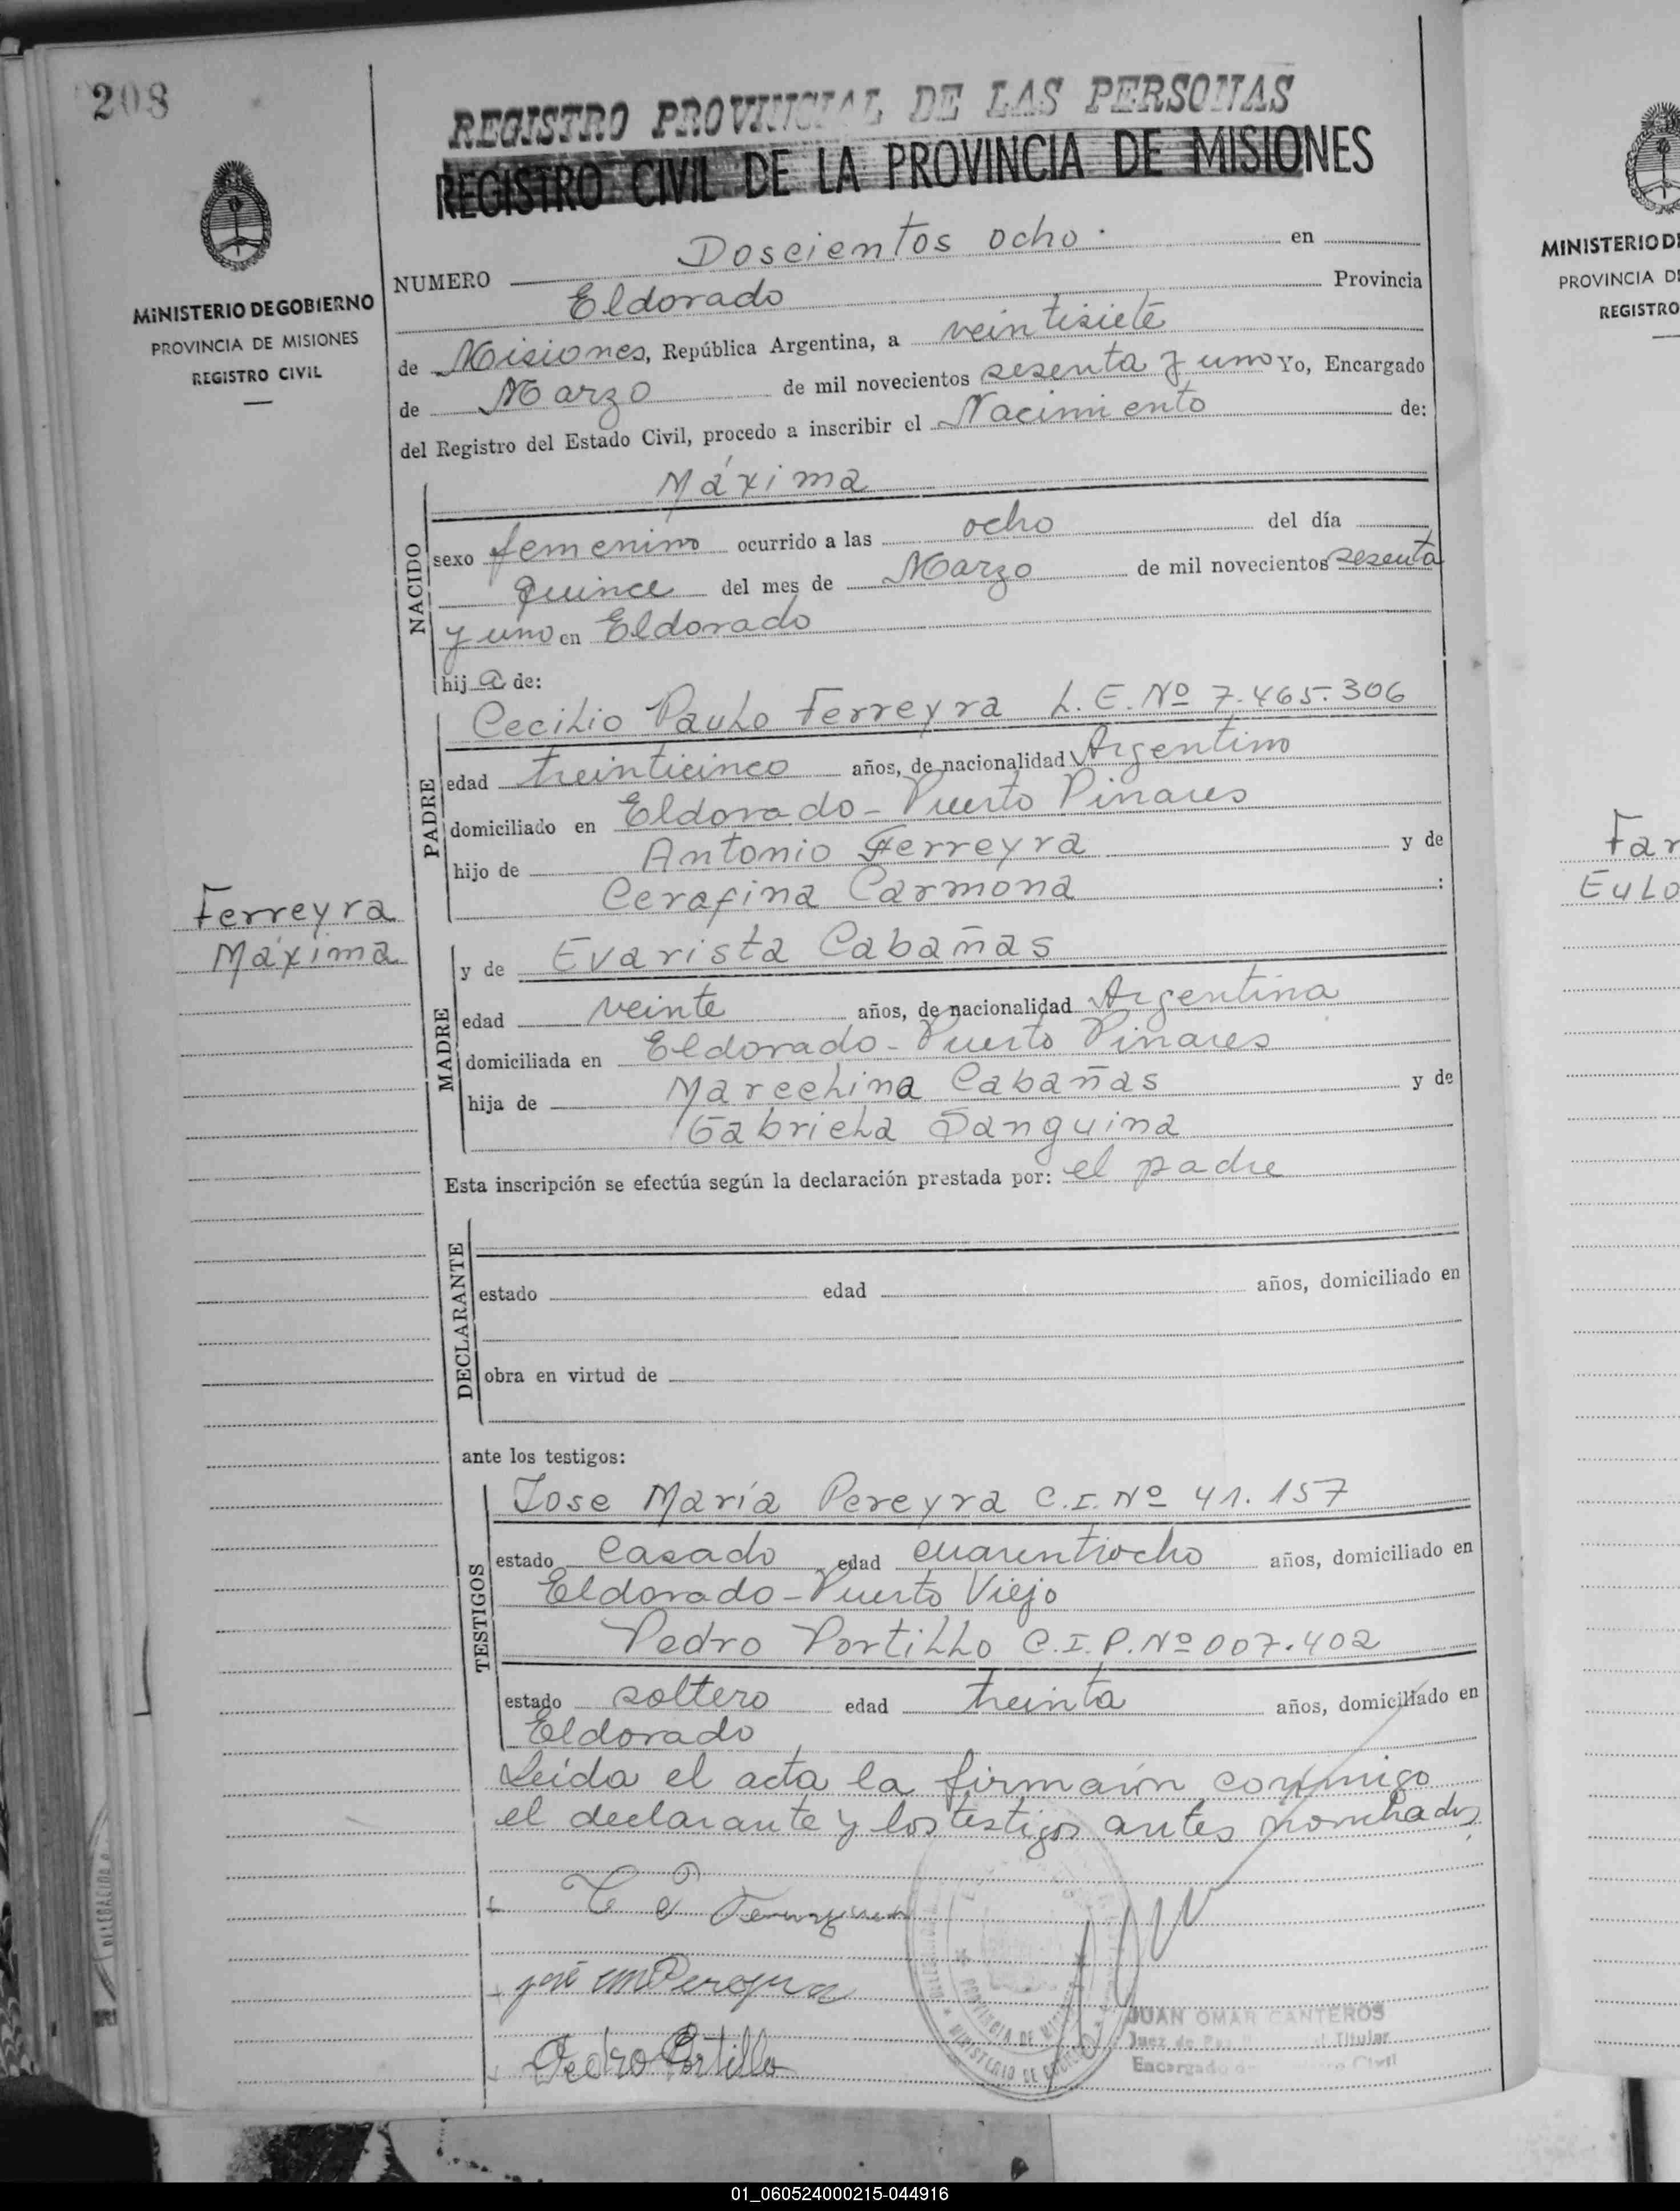 208
REGISTRO PROVINCIAL DE LAS PERSONAS
REGISTRO CIVIL DE LA PROVINCIA DE MISIONES
MINISTERIO DE GOBIERNO
PROVINCIA DE MISIONES
REGISTRO CIVIL
NUMERO Doscientos ocho. en
Eldorado Provincia
de Misiones, República Argentina, a veintisiete
de Marzo de mil novecientos sesenta y uno Yo, Encargado
del Registro del Estado Civil, procedo a inscribir el Nacimiento de:
NACIDO
Máxima
sexo femenino ocurrido a las ocho del día
quince del mes de Marzo de mil novecientos sesenta
y uno en Eldorado
hija de:
PADRE
Cecilio Paulo Ferreyra L.E. Nº 7.465.306
edad treinticinco años, de nacionalidad Argentino
domiciliado en Eldorado - Puerto Pinares
hijo de Antonio Ferreyra y de
Cerafina Carmona :
Ferreyra
Máxima
MADRE
y de Evarista Cabañas
edad veinte años, de nacionalidad Argentina
domiciliada en Eldorado - Puerto Pinares
hija de Marcelina Cabañas y de
Gabriela Sanguina
Esta inscripción se efectúa según la declaración prestada por: el padre
DECLARANTE
estado edad años, domiciliado en
obra en virtud de
ante los testigos:
TESTIGOS
Jose María Pereyra C.I. Nº 41.157
estado Casado edad cuarentiocho años, domiciliado en
Eldorado - Puerto Viejo
Pedro Portillo C.I.P. Nº 007.402
estado soltero edad treinta años, domiciliado en
Eldorado
Leida el acta la firman conmigo
el declarante y los testigos antes nombrados
José M Pereyra
Pedro Portillo
PROVINCIA DE
MINISTERIO DE
JUAN OMAR CANTEROS
Juez de Paz Titular
Encargado de Civil
DELEGACION
MINISTERIO D
PROVINCIA D
REGISTRO
Far
Eulo
01_060524000215-044916